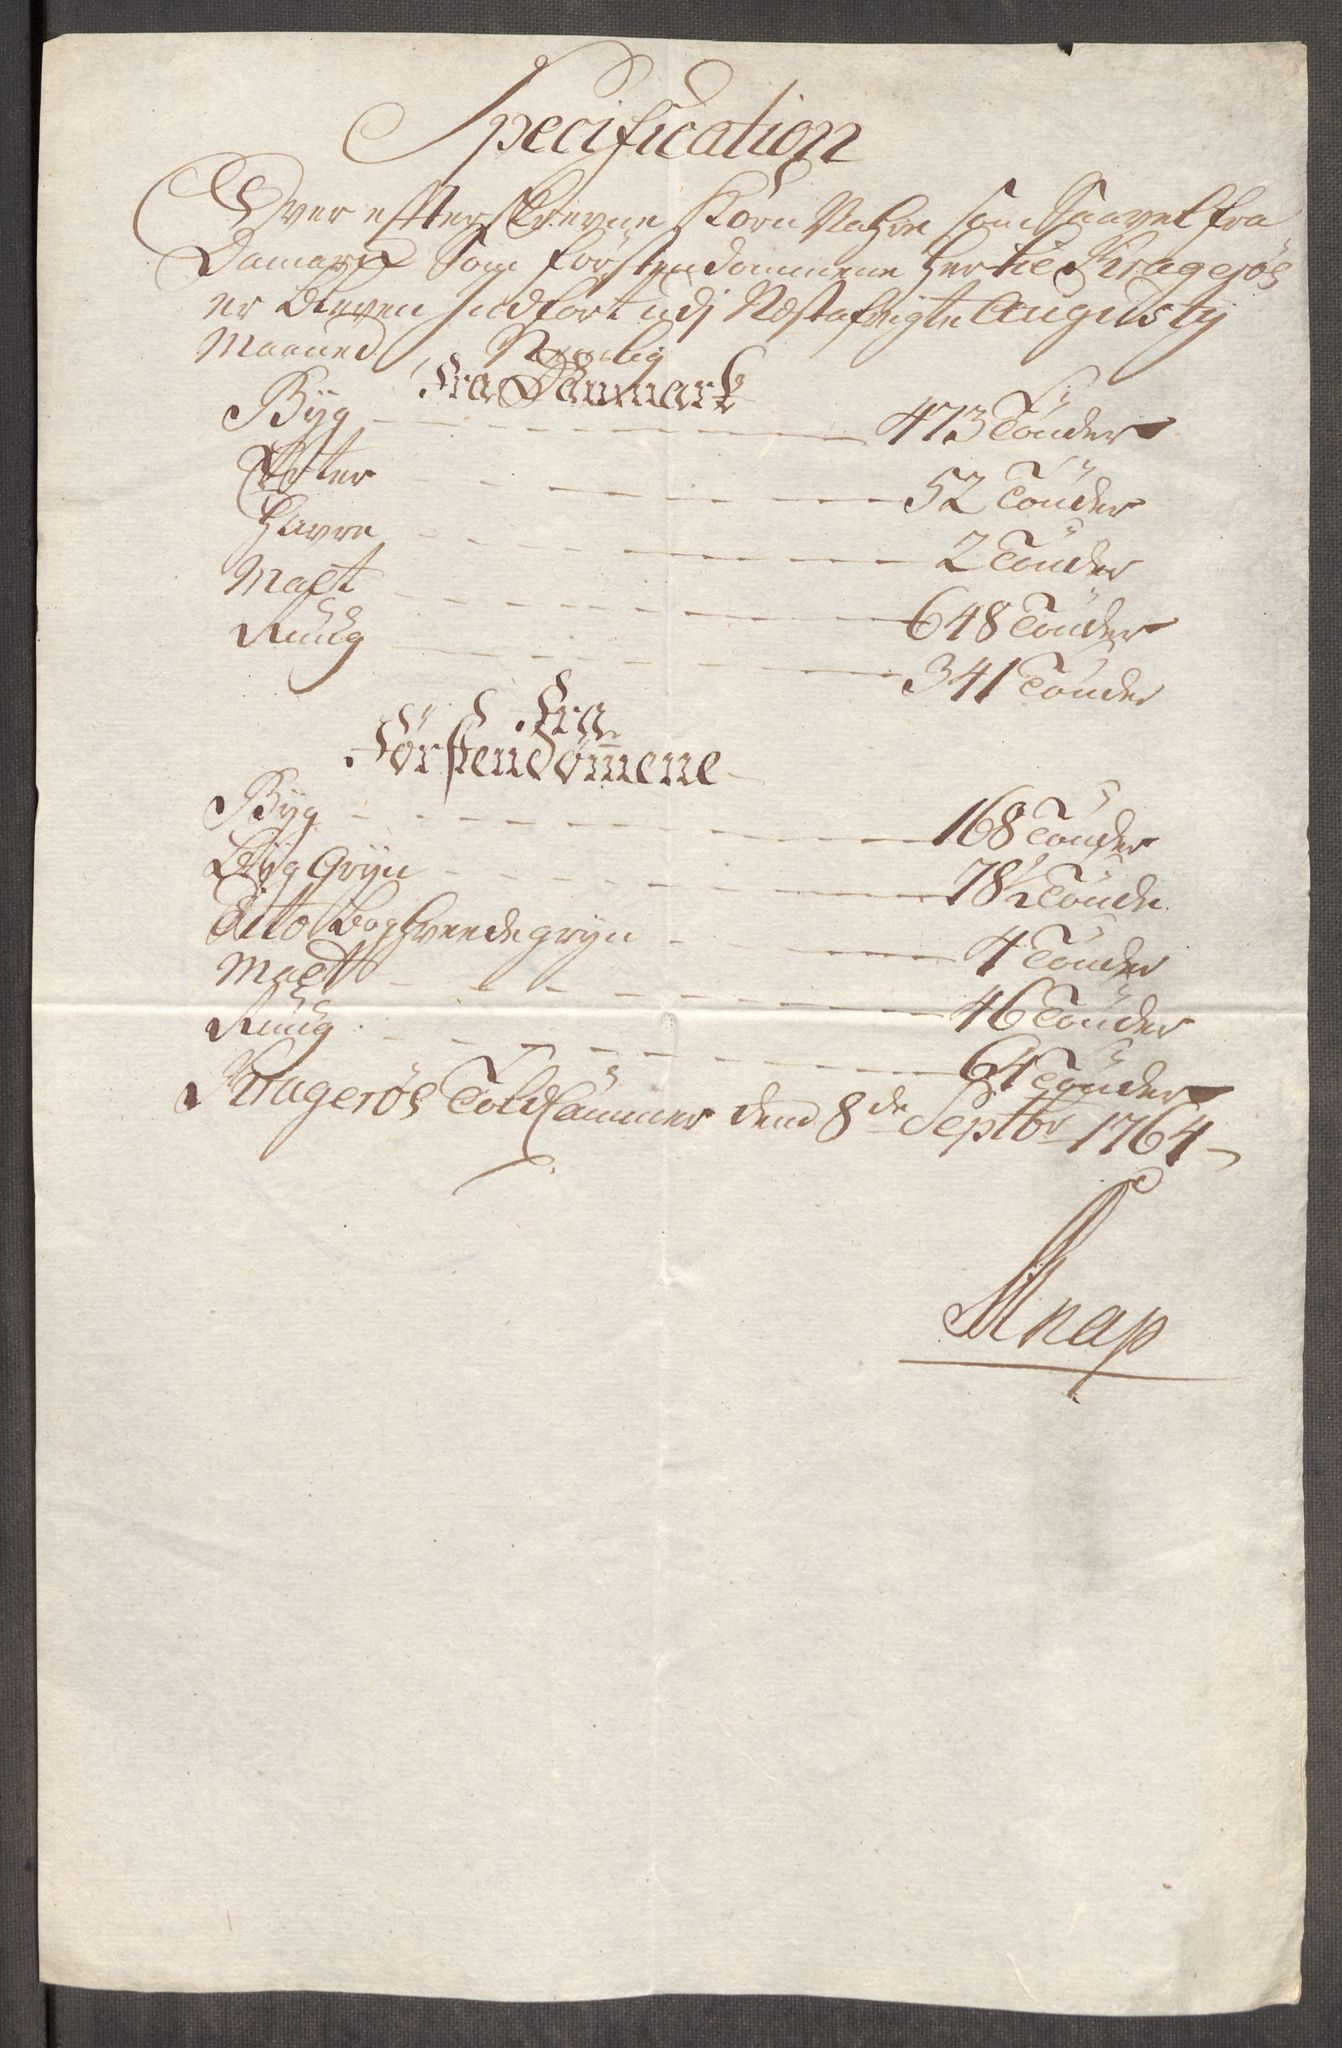 Specification
Over efterskrevne Korn Vahre som Saavel fra
Danmark Som förstendommene her til Kragerøe
er bleven Indfört udj Næstafvigte Augusty
Maaned. Nemlig
Fra Danmark
Byg 473 Tönder
Erter 52 Tönder
Havre 2 Tönder
Malt 648 Tönder
Ruug 341 Tönder
Fra
Förstendömene
Byg 168 Tönder
Byg Gryn 78½ Tönde
Dito Boghveedegryn 4 Tönder
Malt 46 Tönder
Ruug 64 Tönder
Kragerøe Told Cammer dend 8de Septbr 1764
Knap